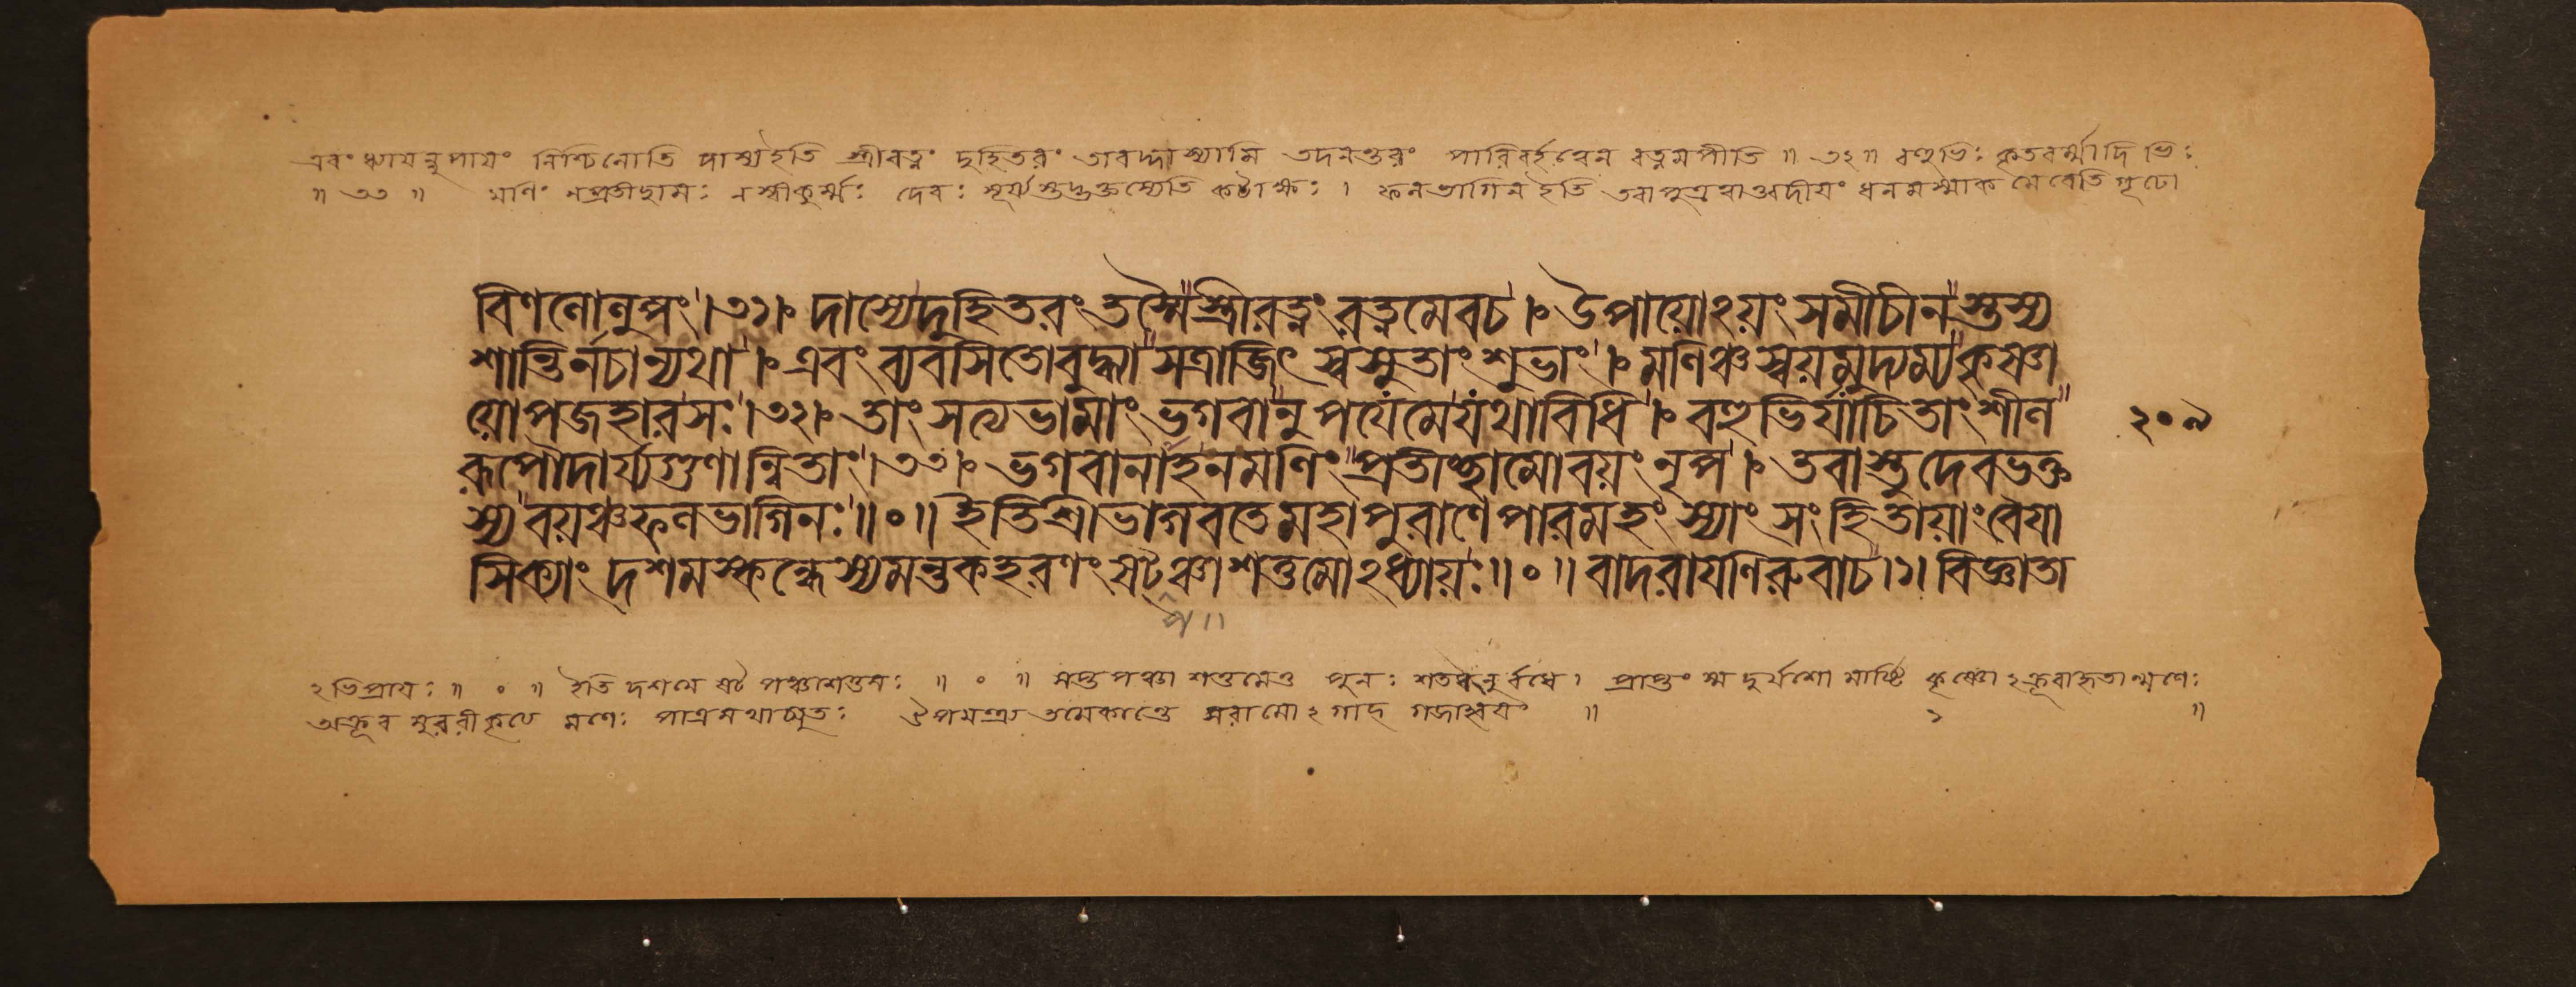 এবং ধ্যায়ন্নুপায়ং নিশ্চিনোতি দাস্যইতি স্ত্রীরত্নং দুহিতরং তাবদ্দাস্যামি তদনন্তরং পারিবর্হত্বেন রত্নমপীতি ॥ ৩২ ॥ বহুভিঃ কৃতবর্ম্মাদিভিঃ
॥ ৩৩ ॥ মণিং নপ্রতীচ্ছামঃ নস্বীকুর্ম্মঃ দেবঃ সূর্য্যস্তদ্ভক্তস্যেতি কটাক্ষঃ । ফলভাগিন ইতি ধনমস্মাকমেবেতি গূঢো
বিণণোনুপং ।৩১। দাস্যেদুহিতরং তস্মৈস্ত্রীরত্নং রত্নমেবচ । উপায়োঽয়ং সমীচীনস্তস্য
শান্তির্নচান্যথা । এবং ব্যবসিতোবুদ্ধ্যাসত্রাজিৎ স্বসুতাং শুভাং । মণিঞ্চস্বয়মুদ্যম্যকৃষ্ণা
য়োপজহারসঃ ।৩২। তাং সত্যভামাং ভগবানুপযেমেযথাবিধি । বহুভির্যাচিতাং শীল
রূপৌদার্য্যগুণান্বিতাং ।৩৩। ভগবানাহনমণিং প্রতীচ্ছামোবয়ং নৃপ । তবাস্তুদেবভক্ত
স্য বয়ঞ্চফলভাগিনঃ ॥০॥ ইতিশ্রীভাগবতেমহাপুরাণেপারমহংস্যাং সংহিতায়াং বৈয়া
সিক্যাং দশমস্কন্ধেস্যমন্তকহরণং ষট্‌ঞ্চাশত্তমোঽধ্যায়ঃ ॥০॥ বাদরায়ণিরুবাচ ।১। বিজ্ঞাতা
২০৯
প ॥
ঽভিপ্রায়ঃ ॥ ০ ॥ ইতি দশমে ষট্‌পঞ্চাশত্তমঃ ॥ ০ ॥ সপ্তপঞ্চাশত্তমেত পুনঃ শতধনুর্বধে । প্রাপ্তং স্ম দুর্যশো মার্ষ্টি কৃষ্ণোঽক্রূরাহৃতান্মণেঃ
অক্রূর মণেঃ তমেকান্তে সরামোঽগাদ্ গজাহ্বয়ং ॥ ১ ॥